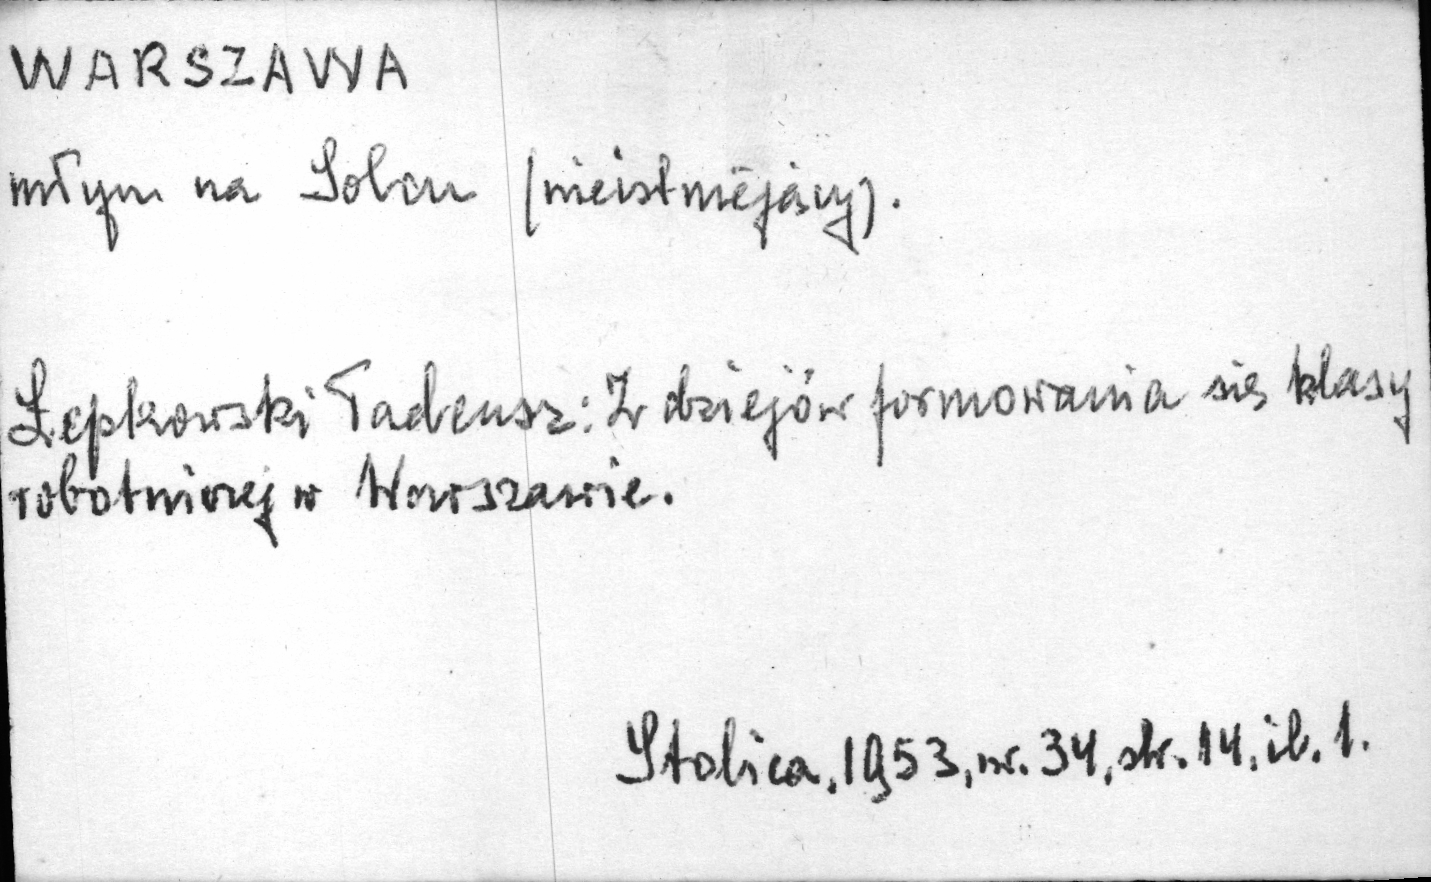 WARSZAWA
młyn na Solcu (nieistniejący).
Łepkowski Tadeusz: Z dziejów formowania się klasy
robotniczej w Warszawie.
Stolica, 1953, nr. 34, str. 14, il. 1.